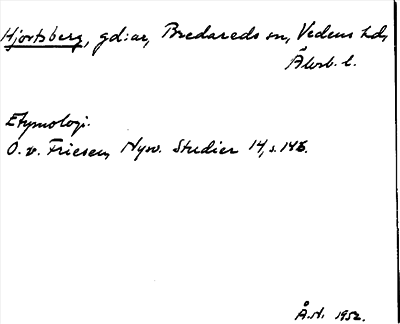 Hjortsberg, gd:ar, Bredareds sn, Vedens hd,
Älvsb. l.
Etymologi.
O. v. Friesen, Nysv. Studier 14, s. 146.
Å.st. 1952.